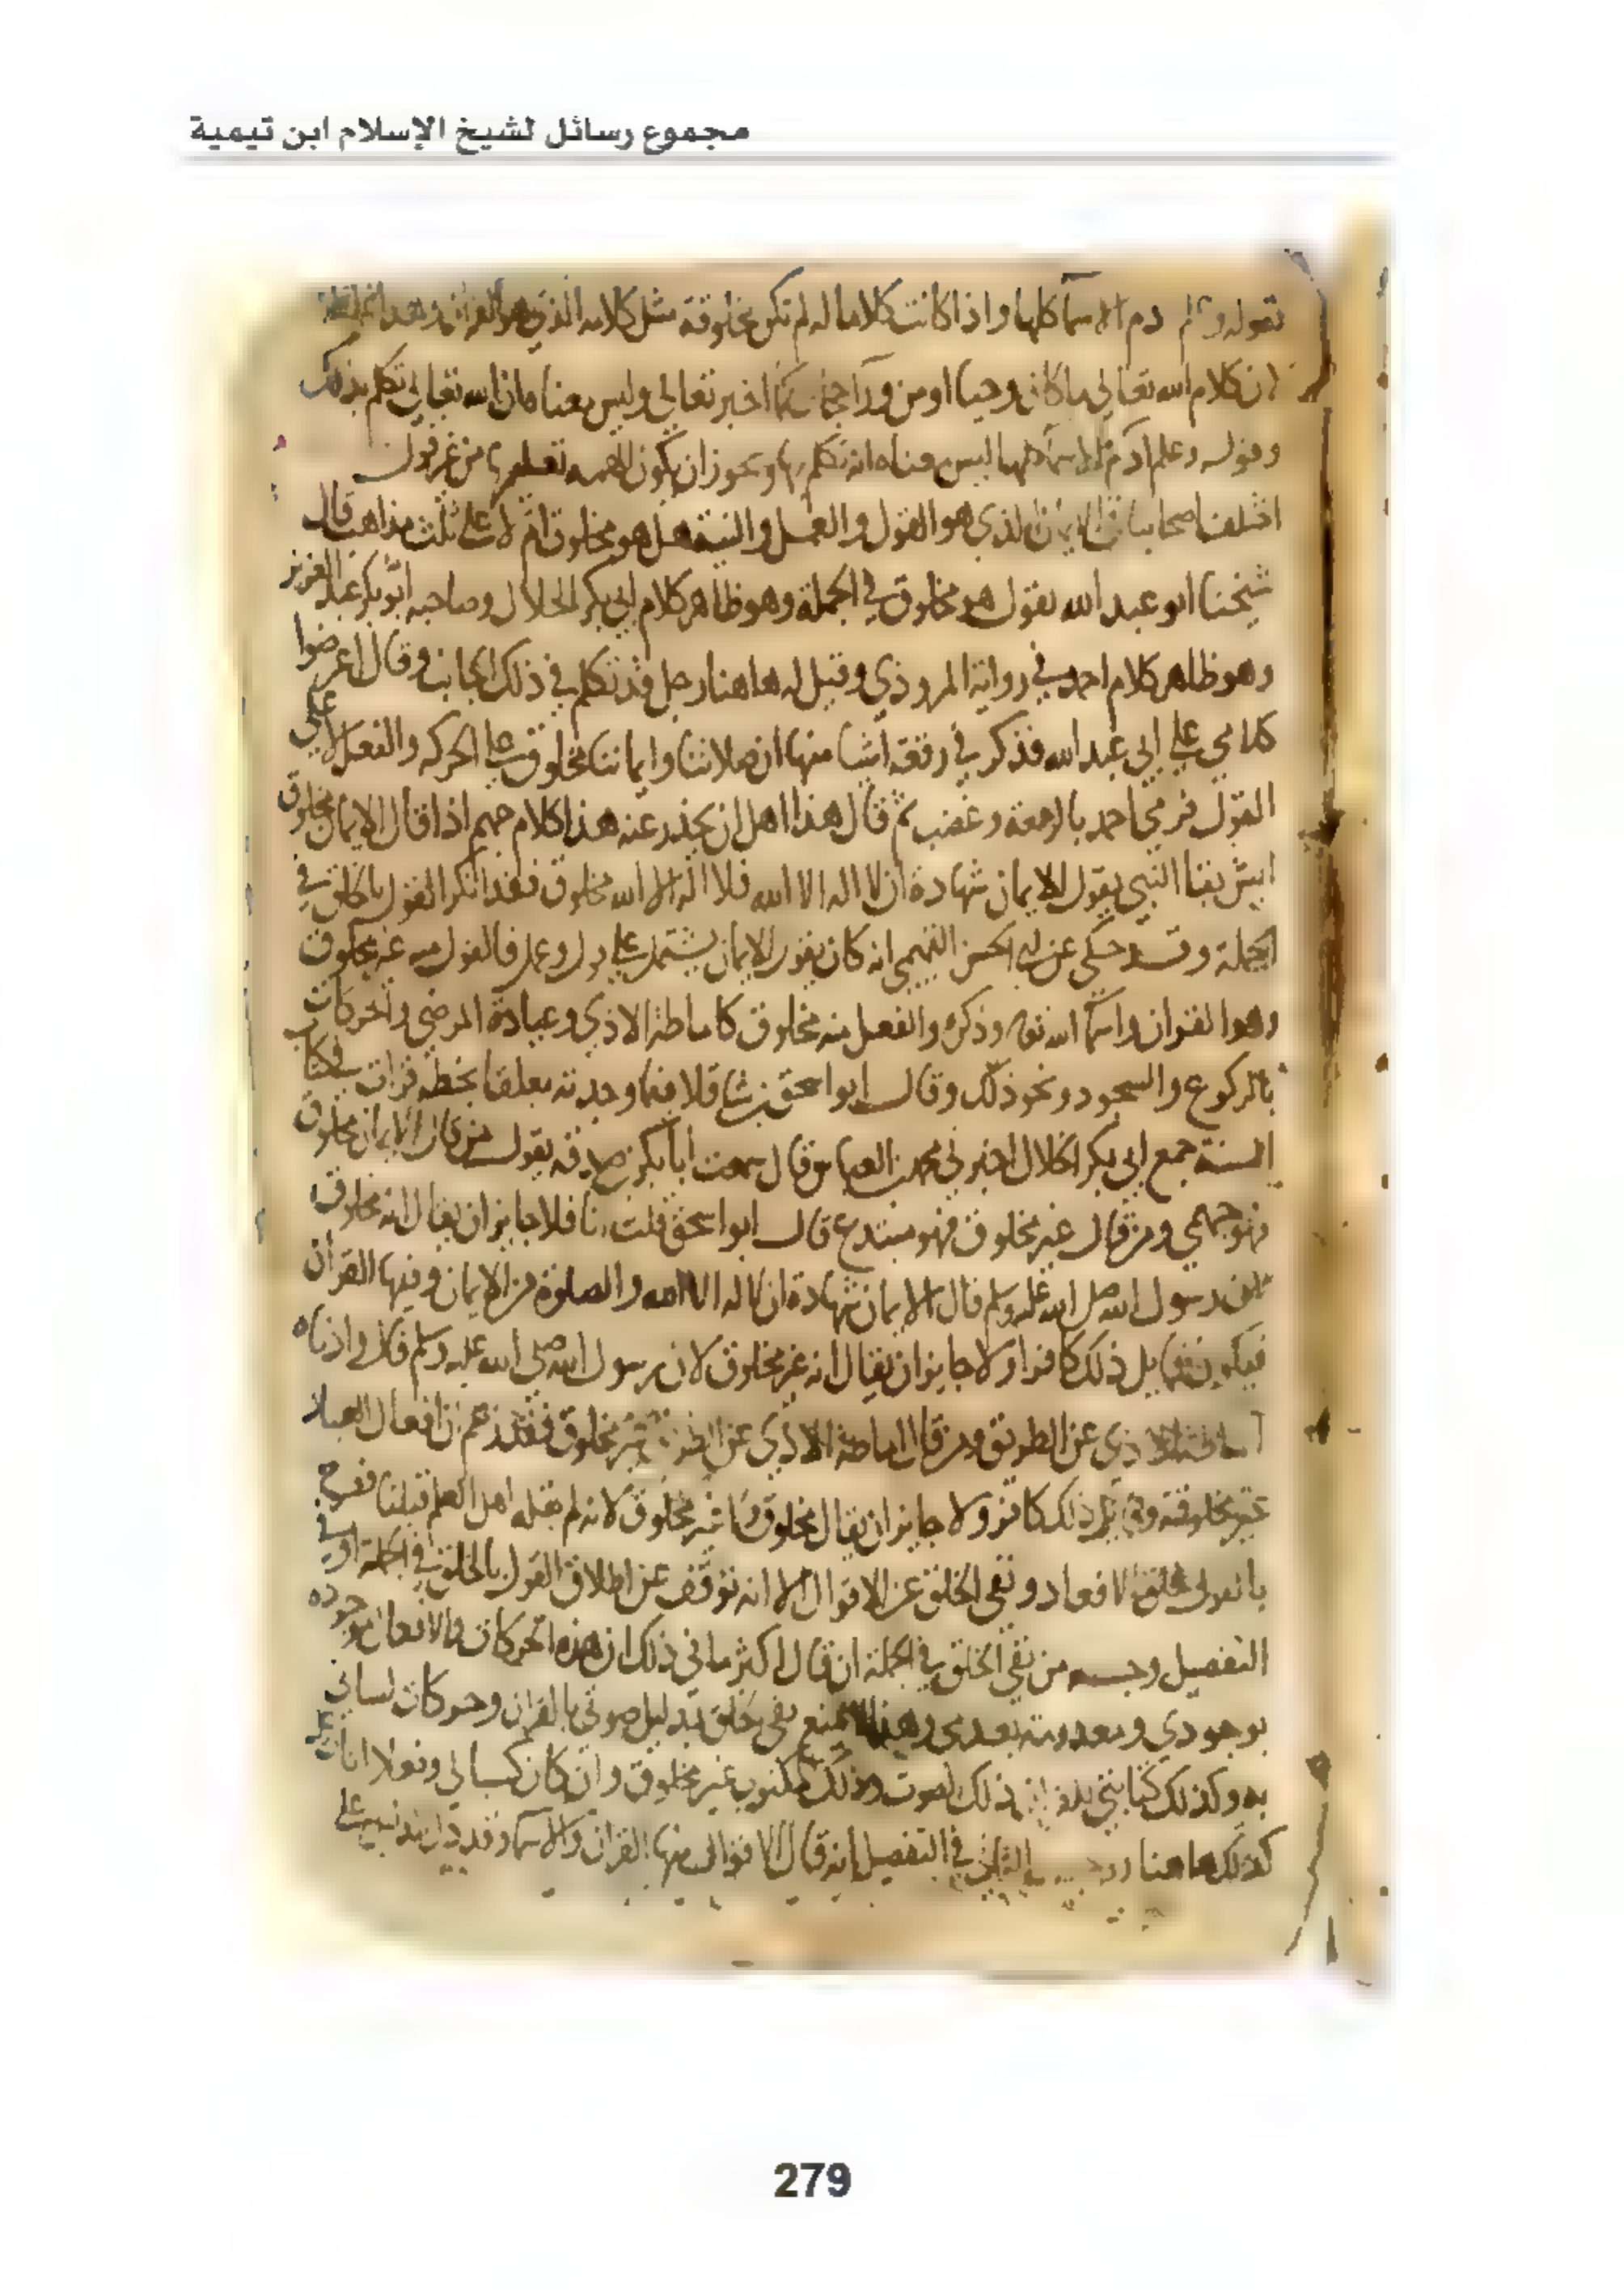 مجموع رسائل لشيخ الإسلام ابن تيمية
كلها واذا كانت كلاما له لم تكن مخلوقة مثل كلامه الذي هو القران وهذا
ان كلام الله تعالى ما كان وحيا او من ورآ حجاب كما اخبر تعالى وليس معناه ان الله تعالى تكلم بذلك
وقوله وعلم ادم الاسمآ كلها ليس معناه انه تكلم بها ويجوز ان يكون الهمه من غير قول
اختلف اصحابنا في الايمان الذي هو القول والعمل والنية هل هو مخلوق ام لا على ثلث مذاهب قال
شيخنا ابو عبد الله نقول هو مخلوق في الجملة وهو ظاهر كلام ابي بكر الخلال وصاحبه ابو بكر عبد العزيز
وهو ظاهر كلام احمد في رواية المروذي وقيل له هاهنا رجل قد تكلم في ذلك الجانب وقال اعرضوا
كلامي على ابي عبد الله فذكر في رقعة اشيا منها ان صلاتنا وايماننا مخلوق على الحركه والفعل لا على
القول فرمى احمد بالرقعة وغضب ثم قال هذا اهل ان يحذر عنه هذا كلام جهم اذا قال الايمان مخلوق
ايش بقا النبي يقول الايمان شهادة ان لا اله الا الله فلا اله الا الله مخلوق فقد انكر القول بالخلق في
الجملة وقد حكى عن ابي الحسن التميمي انه كان يقول الايمان يشتمل على قول وعمل فالقول منه غير مخلوق
وهو القران واسمآ الله وذكره والفعل منه مخلوق كاماطة الاذي وعيادة المرضى والحركات
بالركوع والسجود ونحو ذلك وقال ابو اسحق بن شاقلا فيما وجدته معلقا بخطه قرات في كتاب
السنة جمع ابي بكر الخلال اخبرني محمد بن العباس قال سمعت ابا بكر بن صدقه يقول من قال الايمان مخلوق
فهو جهمي ومن قال غير مخلوق فهو مبتدع قال ابو اسحق قلت انا فلا جايز ان يقال انه مخلوق
رسول الله صلى الله عليه وسلم قال الايمان شهادة ان لا اله الا الله والصلوة من الايمان وفيها القرآن
فيكون قايل ذلك كافرا ولا جايز ان يقال انه غير مخلوق لان رسول الله صلى الله عليه وسلم قال وادناه
اماطة الاذي عن الطريق ومن قال اماطة الاذي عن الطريق غير مخلوق فقد زعم ان افعال العباد
غير مخلوقة وقايل ذلك كافر ولا جايز ان يقال مخلوق غير مخلوق لانه لم يقله اهل العلم قبلنا فصرح
بالقول بخلق الافعال ونفى الخلق عن الاقوال الا انه توقف عن اطلاق القول بالخلق في الجملة او في
التفصيل وجه من نفى الخلق في الجملة ان قال اكثر ما في ذلك ان هذه الحركات والافعال موجوده
بوجودي ومعدومة بعدمي وهذا لا يمنع نفي خلق بدليل صوتي بالقران وحركات لساني
به وكذلك كتابتي ذلك الصوت وذلك المكتوب غير مخلوق وان كان
كذلك هاهنا في التفصيل انه قال الاقوال منها القران والاسمآ وقد
279